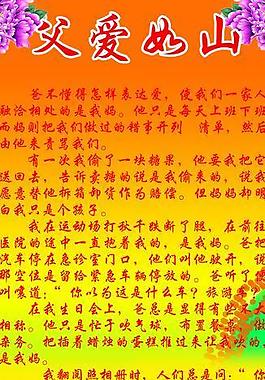 父爱如山
爸不懂得怎样表达爱，使我们一家人
融洽相处的是我妈。他只是每天上班下班
而妈则把我们做过的错事开列 清单，然后
由他来责骂我们。
有一次我偷了一块糖果，他要我把它
送回去，告诉卖糖的说是我偷来的，说我
愿意替他拆箱卸货作为赔偿。但妈妈却明
白我只是个孩子。
我在运动场打秋千跌断了腿，在前往
医院的途中一直抱着我的，是我妈。爸把
汽车停在急诊室门口，他们叫他驶开，说
那空位是留给紧急车辆停放的。爸听了便
叫嚷道：“你以为这是什么车？旅游车
在我生日会上，爸总是显得有些不大
相称。他只是忙于吹气球，布置餐桌，做
杂务。把插着蜡烛的蛋糕推过来让我吹的，
是我妈。
我翻阅照相册时，人们总是问：“你